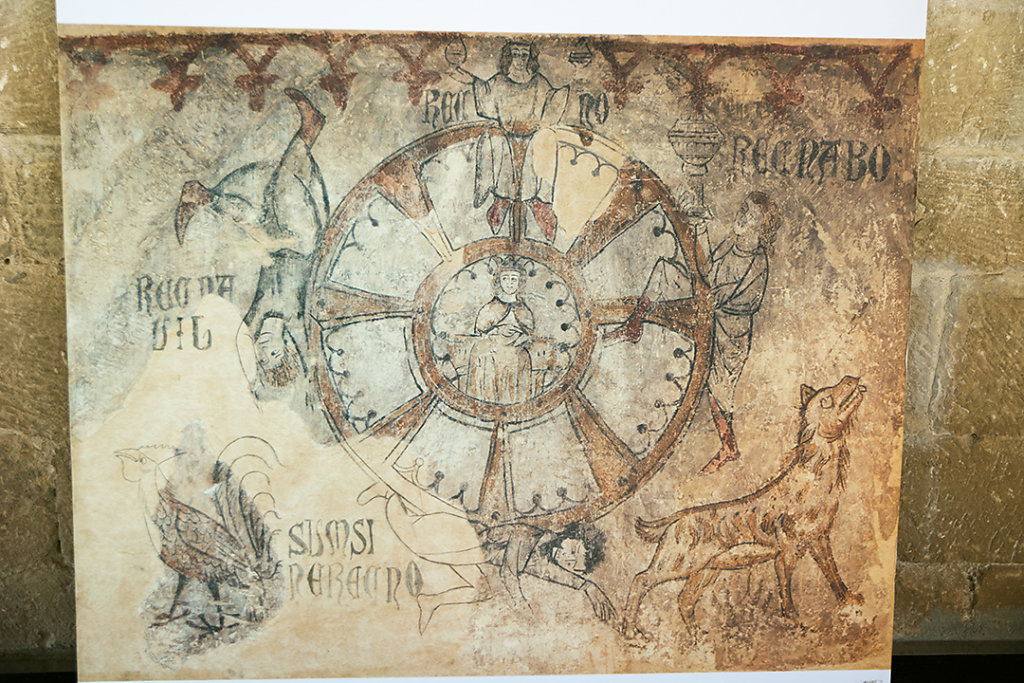 REG NO
REGNABO
REGNA
VIT
SUMSI
NEREGNO